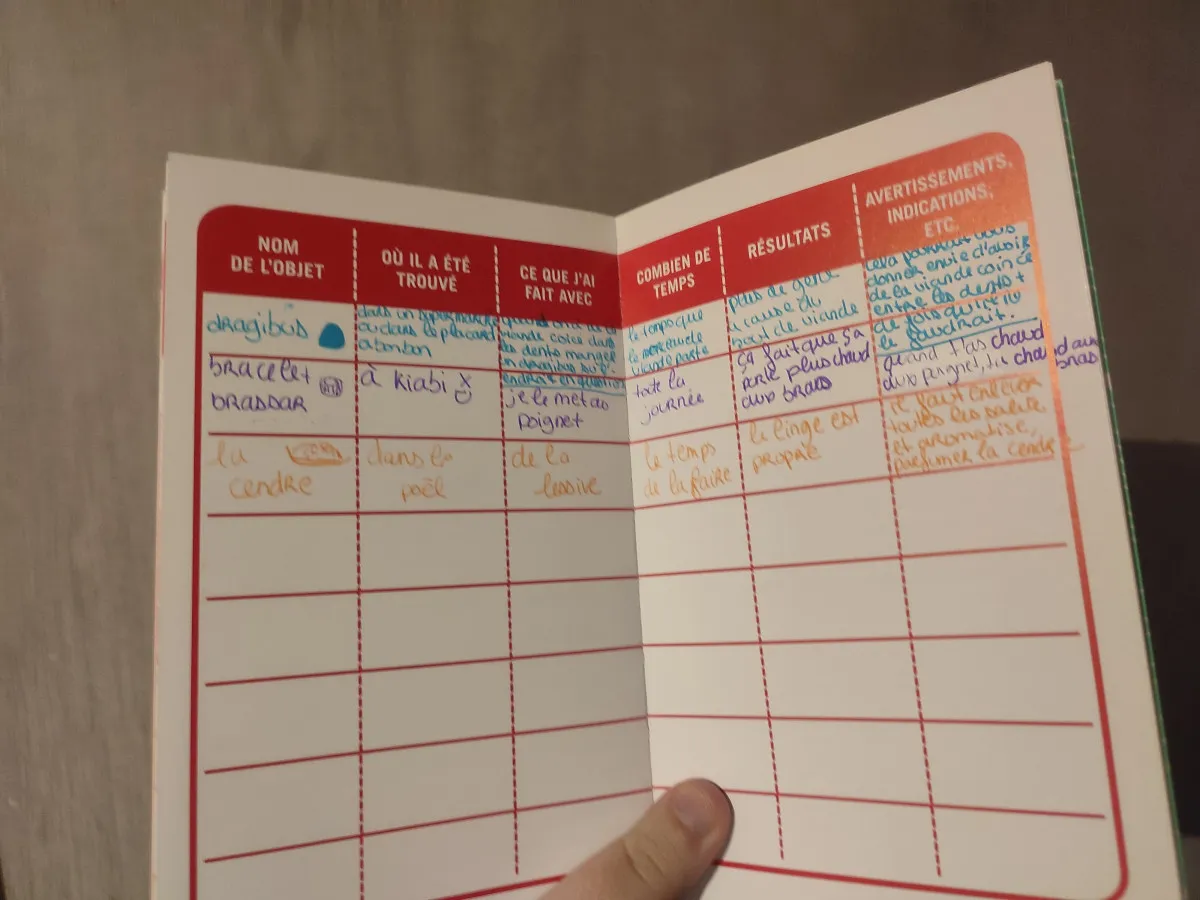 NOM
DE L'OBJET
OÙ IL A ÉTÉ
TROUVÉ
CE QUE J'AI
FAIT AVEC
COMBIEN DE
TEMPS
RÉSULTATS
AVERTISSEMENTS,
INDICATIONS,
ETC.
dragibus
dans un hypermarché
ou dans le placard
a bonbon
viande coincé dans
les dents mangé
un dragibus
le temps que
le morceau de
viande parte
plus de gene
a cause du
bout de viande
cela pourrait vous
donner envie d'avoir
de la viande coincé
entre les dents +
de fois qu'il ne
le faudrait.
bracelet
brassar
à kiabi
je le met au
poignet
toute la
journée
ça fait que ça
plus chaud
aux bras
quand t'as chaud
aux poignet, tu chaud aux
bras
la
cendre
dans le
poël
de la
lessive
le temps
de la faire
le linge est
propre
il faut enlever
toutes les
et aromatisé,
parfumer la cendre